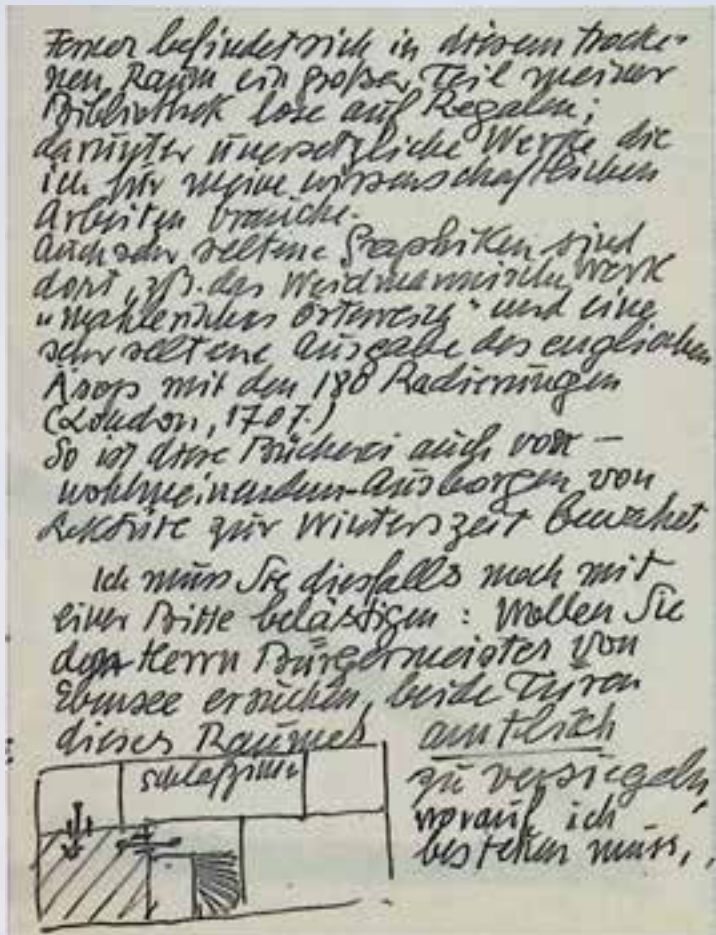 Ferner befindet sich in diesem trocke-
nen Raum ein großer Teil meiner
Bibliothek lose auf Regalen;
darunter unersetzliche Werke die
ich für meine wissenschaftlichen
Arbeiten brauche.
Auch sehr seltene Graphiken sind
dort, z.B. das Weidmannische Werk
„Mahlerisches Österreich“ und eine
sehr seltene Ausgabe des englischen
Äsops mit den 180 Radierungen
(London, 1707.)
So ist diese Bücherei auch vor —
wohlmeinendem Ausborgen von
Lektüre zur Winterszeit bewahrt,
Ich muss Sie diesfalls noch mit
einer Bitte belästigen: Wollen Sie
den Herrn Bürgermeister von
Ebensee ersuchen, beide Türen
dieses Raumes amtlich
zu versiegeln,
worauf ich
bestehen muss,
Schlafzimmer